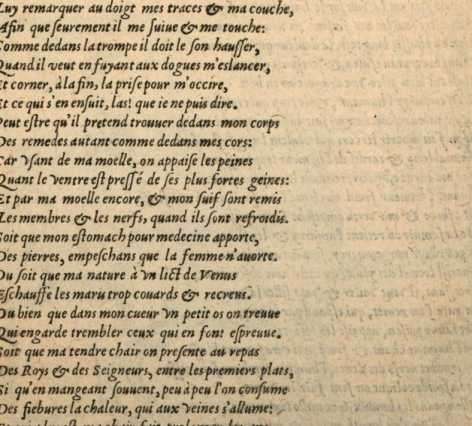 Luy remarquer au doigt mes traces & ma couche,
Afin que ſeurement il me ſuiue & me touche:
Comme dedans la trompe il doit le ſon hauſſer,
Quand il veut en fuyant aux dogues m'eslancer,
Et corner, à la fin, la priſe pour m'occire,
Et ce qui s'en enſuit, las! que ie ne puis dire.
Peut eſtre qu'il pretend trouuer dedans mon corps
Des remedes autant comme dedans mes cors:
Car vſant de ma moelle, on appaiſe les peines
Quant le ventre eſt preſſé de ſes plus fortes geines:
Et par ma moelle encore, & mon ſuif ſont remis
Les membres & les nerfs, quand ils ſont refroidis.
Soit que mon eſtomach pour medecine apporte,
Des pierres, empeſchans que la femme n'auorte.
Ou ſoit que ma nature à vn lict de Venus
Eſchauffe les maris trop couards & recreus.
Ou bien que dans mon cueur vn petit os on treuue
Qui engarde trembler ceux qui en font eſpreuue.
Soit que ma tendre chair on preſente au repas
Des Roys & des Seigneurs, entre les premiers plats,
Si qu'en mangeant ſouuent, peu à peu l'on conſume
Des fiebures la chaleur, qui aux veines s'allume: